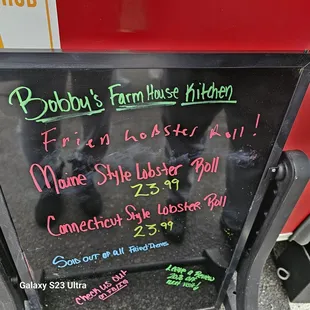 Bobby's Farm House Kitchen
Frien Lobster Roll!
Maine Style Lobster Roll
23.99
Connecticut Style Lobster Roll
23.99
Sold out of all Fried Items
Check us out
Leave a Review
Galaxy S23 Ultra